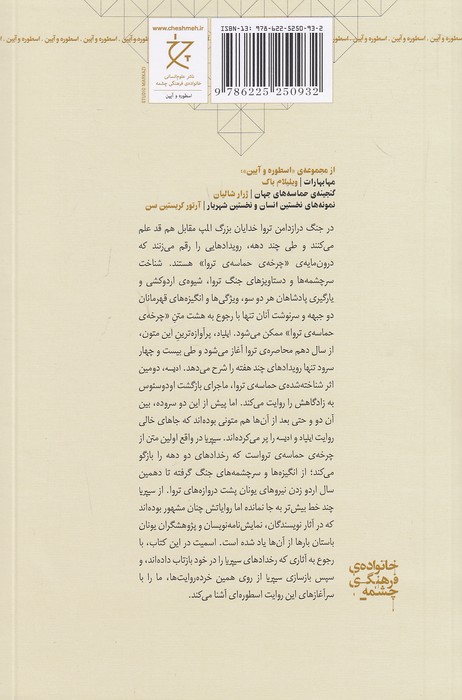 ISBN-13: 978-622-5250-93-2
9 786225 250932
www.cheshmeh.ir
نشر علوم‌انسانی
خانواده‌ی فرهنگی چشمه
اسطوره و آیین
STUDIO MARKAZI
اسطوره و آیین . اسطوره و آیین . اسطوره و آیین . اسطوره و آیین
از مجموعه‌ی «اسطوره و آیین»:
مهابهارات | ویلیام باک
گنجینه‌ی حماسه‌های جهان | ژرار شالیان
نمونه‌های نخستین انسان و نخستین شهریار | آرتور کریستین سن
در جنگ درازدامن تروا خدایان بزرگ المپ مقابل هم قد علم
می‌کنند و طی چند دهه، رویدادهایی را رقم می‌زنند که
درون‌مایه‌ی «چرخه‌ی حماسه‌ی تروا» هستند. شناخت
سرچشمه‌ها و دستاویزهای جنگ تروا، شیوه‌ی اردوکشی و
یارگیری پادشاهان هر دو سو، ویژگی‌ها و انگیزه‌های قهرمانان
دو جبهه و سرنوشت آنان تنها با رجوع به هشت متنِ «چرخه‌ی
حماسه‌ی تروا» ممکن می‌شود. ایلیاد، پرآوازه‌ترینِ این متون،
از سال دهم محاصره‌ی تروا آغاز می‌شود و طی بیست و چهار
سرود تنها رویدادهای چند هفته را شرح می‌دهد. ادیسه، دومین
اثر شناخته‌شده‌ی حماسه‌ی تروا، ماجرای بازگشت اودوسئوس
به زادگاهش را روایت می‌کند. اما پیش از این دو سروده، بین
آن دو و حتی بعد از آن‌ها هم متونی بوده‌اند که جاهای خالی
روایت ایلیاد و ادیسه را پر می‌کرده‌اند. سیپریا در واقع اولین متن از
چرخه‌ی حماسه‌ی ترواست که رخدادهای دو دهه را بازگو
می‌کند؛ از انگیزه‌ها و سرچشمه‌های جنگ گرفته تا دهمین
سال اردو زدن نیروهای یونان پشت دروازه‌های تروا. از سیپریا
چند خط بیش‌تر به جا نمانده اما روایاتش چنان مشهور بوده‌اند
که در آثار نویسندگان، نمایش‌نامه‌نویسان و پژوهشگران یونان
باستان بارها از آن‌ها یاد شده است. اسمیت در این کتاب، با
رجوع به آثاری که رخدادهای سیپریا را در خود بازتاب داده‌اند، و
سپس بازسازی سیپریا از روی همین خرده‌روایت‌ها، ما را با
سرآغازهای این روایت اسطوره‌ای آشنا می‌کند.
خانواده‌ی
فرهنگی
چشمه